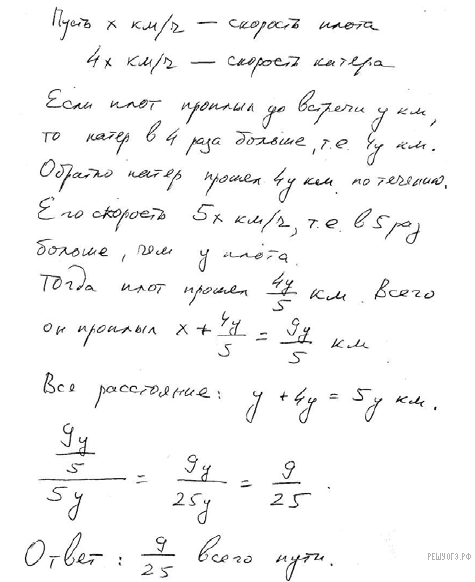 Пусть x км/ч — скорость плота
4x км/ч — скорость катера
Если плот проплыл до встречи y км,
то катер в 4 раза больше, т.е. 4y км.
Обратно катер прошел 4y км по течению.
Его скорость 5x км/ч, т.е. в 5 раз
больше, чем у плота.
Тогда плот прошел 4y/5 км. Всего
он проплыл x + 4y/5 = 9y/5 км
Все расстояние: y + 4y = 5y км.
(9y/5)/(5y) = 9y/25y = 9/25.
Ответ: 9/25 всего пути.
РЕШУОГЭ.РФ